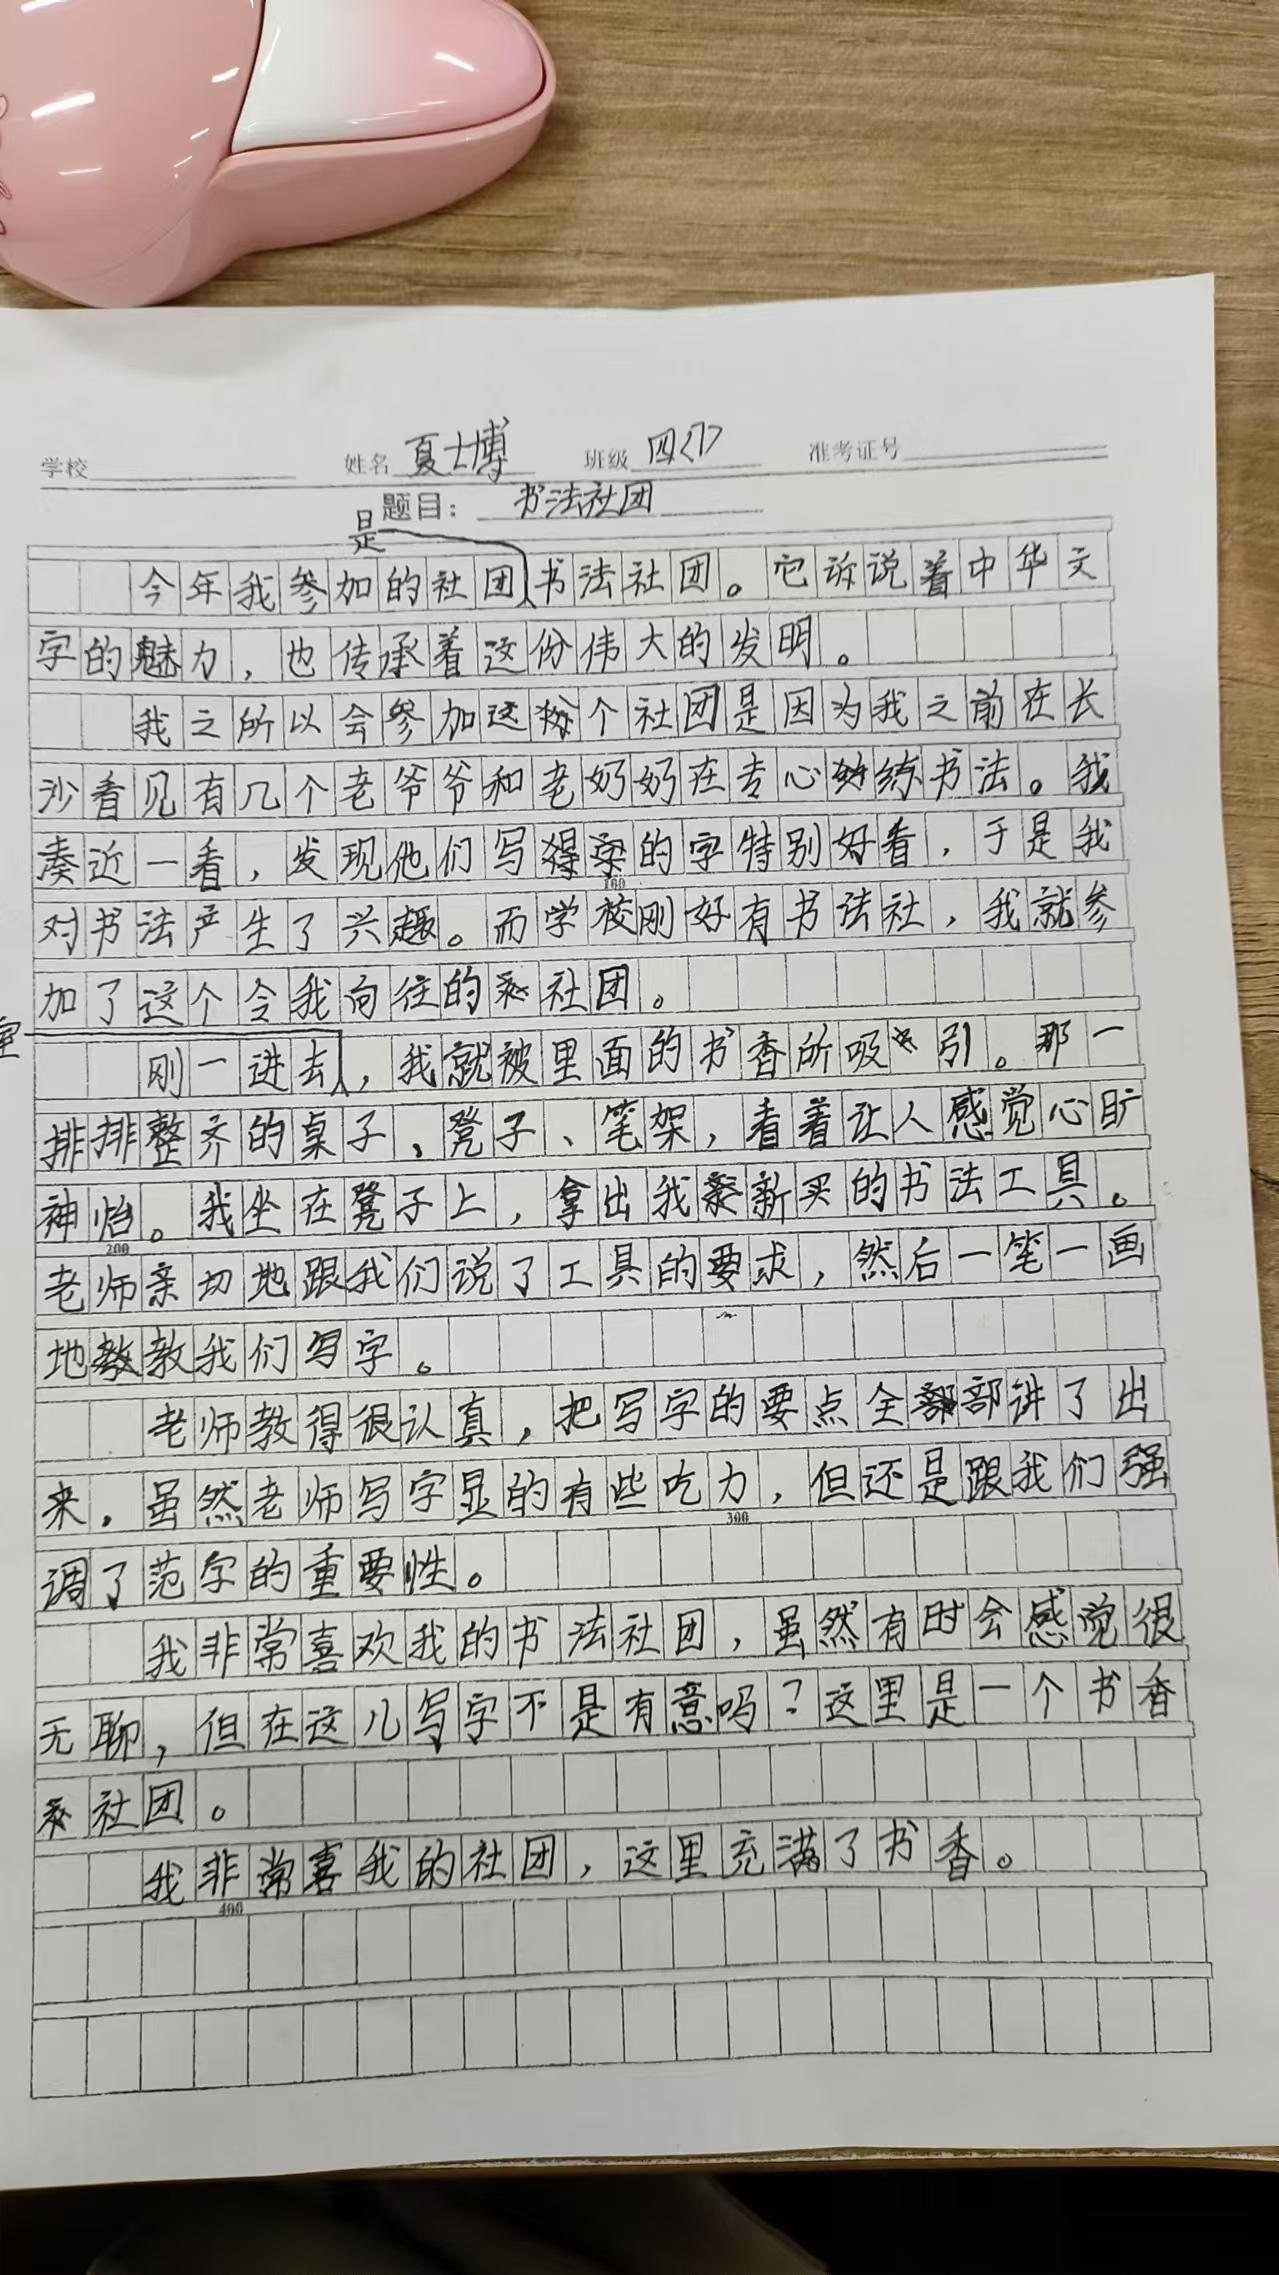 学校 姓名 夏士博 班级 四<7> 准考证号
题目： 书法社团
今年我参加的社团是书法社团。它诉说着中华文
字的魅力，也传承着这份伟大的发明。
我之所以会参加这个社团是因为我之前在长
沙看见有几个老爷爷和老奶奶在专心练书法。我
凑近一看，发现他们写得的字特别好看，于是我
对书法产生了兴趣。而学校刚好有书法社，我就参
加了这个令我向往的社团。
刚一进去，我就被里面的书香所吸引。那一
排排整齐的桌子、凳子、笔架，看着让人感觉心旷
神怡。我坐在凳子上，拿出我新买的书法工具。
老师亲切地跟我们说了工具的要求，然后一笔一画
地教我们写字。
老师教得很认真，把写字的要点全部讲了出
来。虽然老师写字显的有些吃力，但还是跟我们强
调了范字的重要性。
我非常喜欢我的书法社团，虽然有时会感觉很
无聊，但在这儿写字不是有意吗？这里是一个书香
社团。
我非常喜我的社团，这里充满了书香。
100
200
300
400